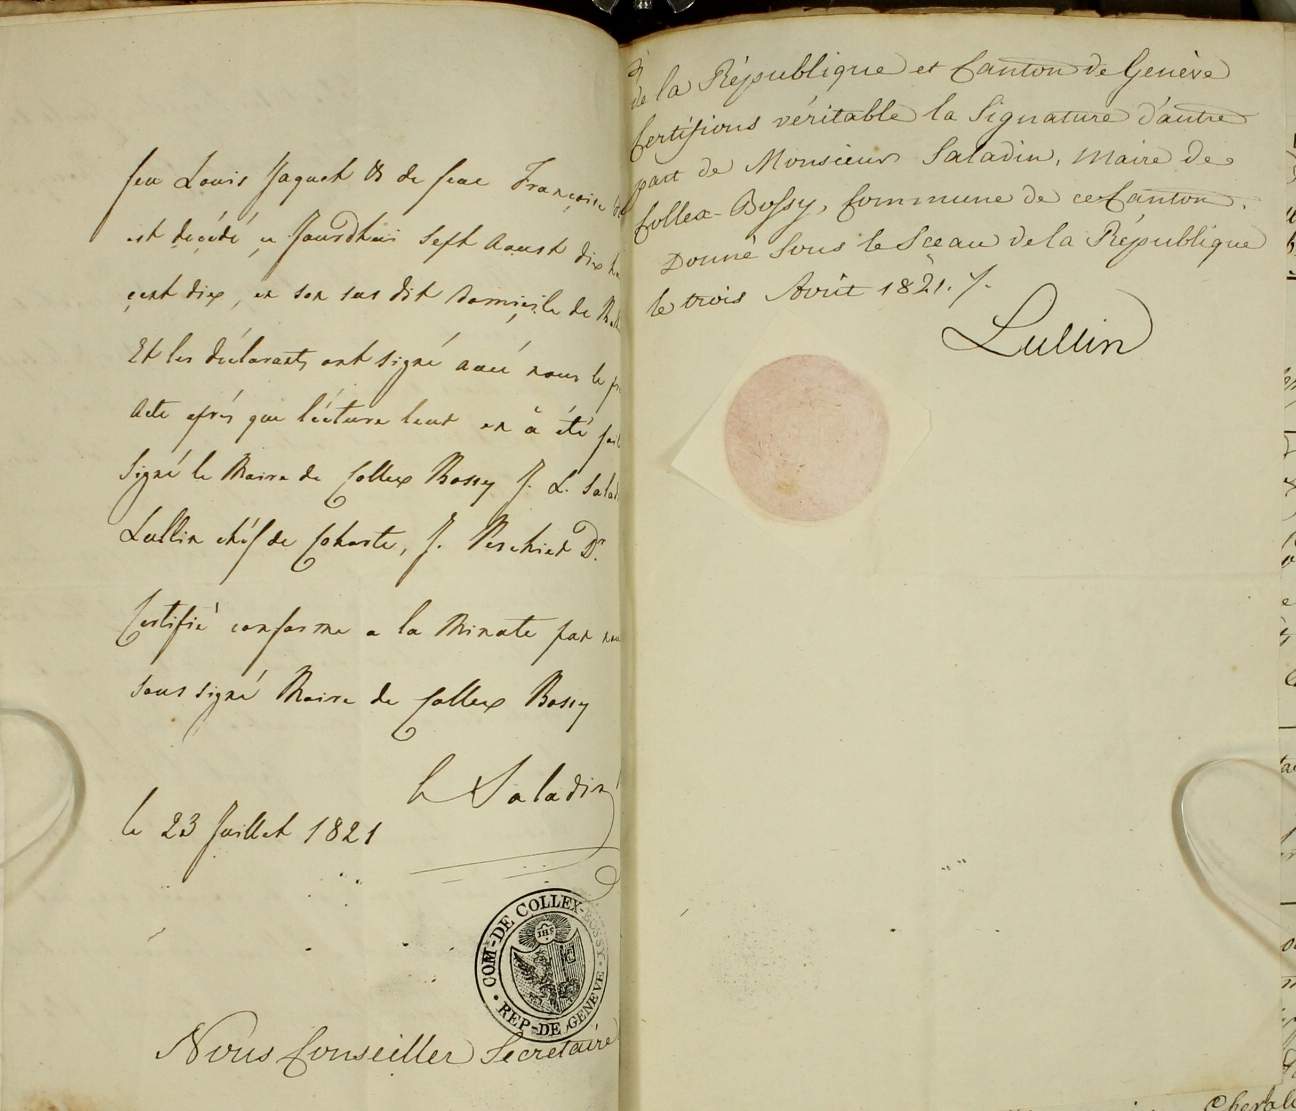 feu Louis Jaquet & de feue Françoise
est décédé, ce Jourdhui Sept Aoust dix
cent dix, en son sus dit Domiçile de
Et les déclarants ont signé avec nous le
Acte aprés que lécture leur en à été
Signé le Maire de Collex Bossy J. L. Salad
Lullin chéf de Cohorte, J. Peschier Dr.
Certifié conforme a la Minute par
sous signé Maire de Collex Bossy
Saladin
le 23 Juillet 1821
COM-DE COLLEX-BOSSY-
IHS
REP-DE GENEVE
Nous Conseiller Secretaire
de la République et Canton de Genève
Certifions véritable la Signature d'autre
part de Monsieur Saladin, Maire de
Collex-Bossy, Commune de ce Canton.
Donné Sous le Sceau de la République
le trois Août 1821.
Lullin